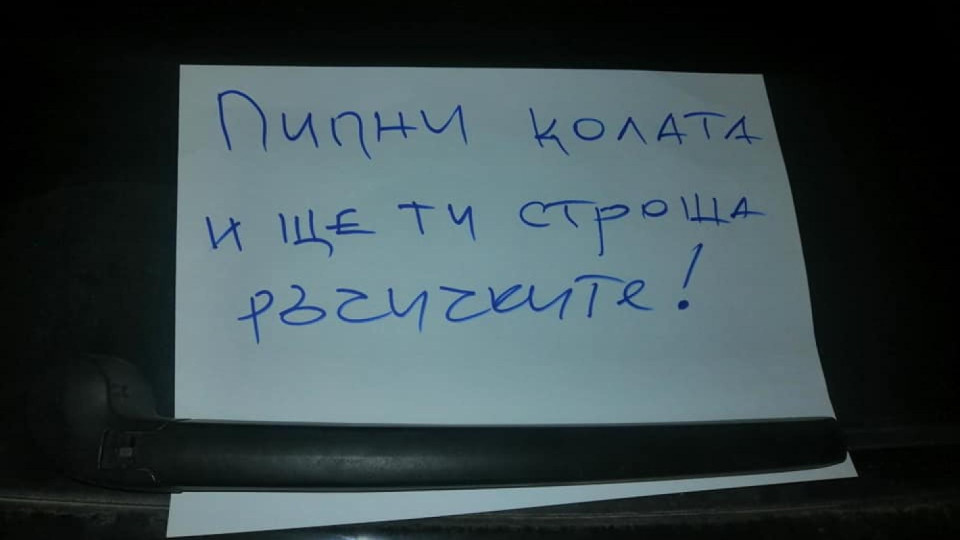 Пипни колата
и ще ти строша
ръчичките!